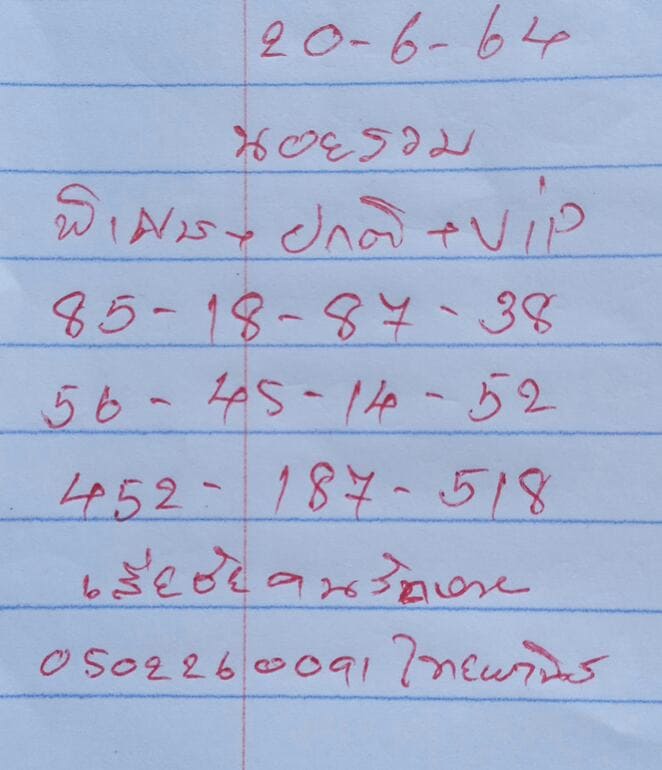 20-6-64
นอยรวม
พิเศษ + ปกติ + VIP
85-18-87-38
56-45-14-52
452-187-518
เสี่ยชัย
0502260091 ไทยพานิช